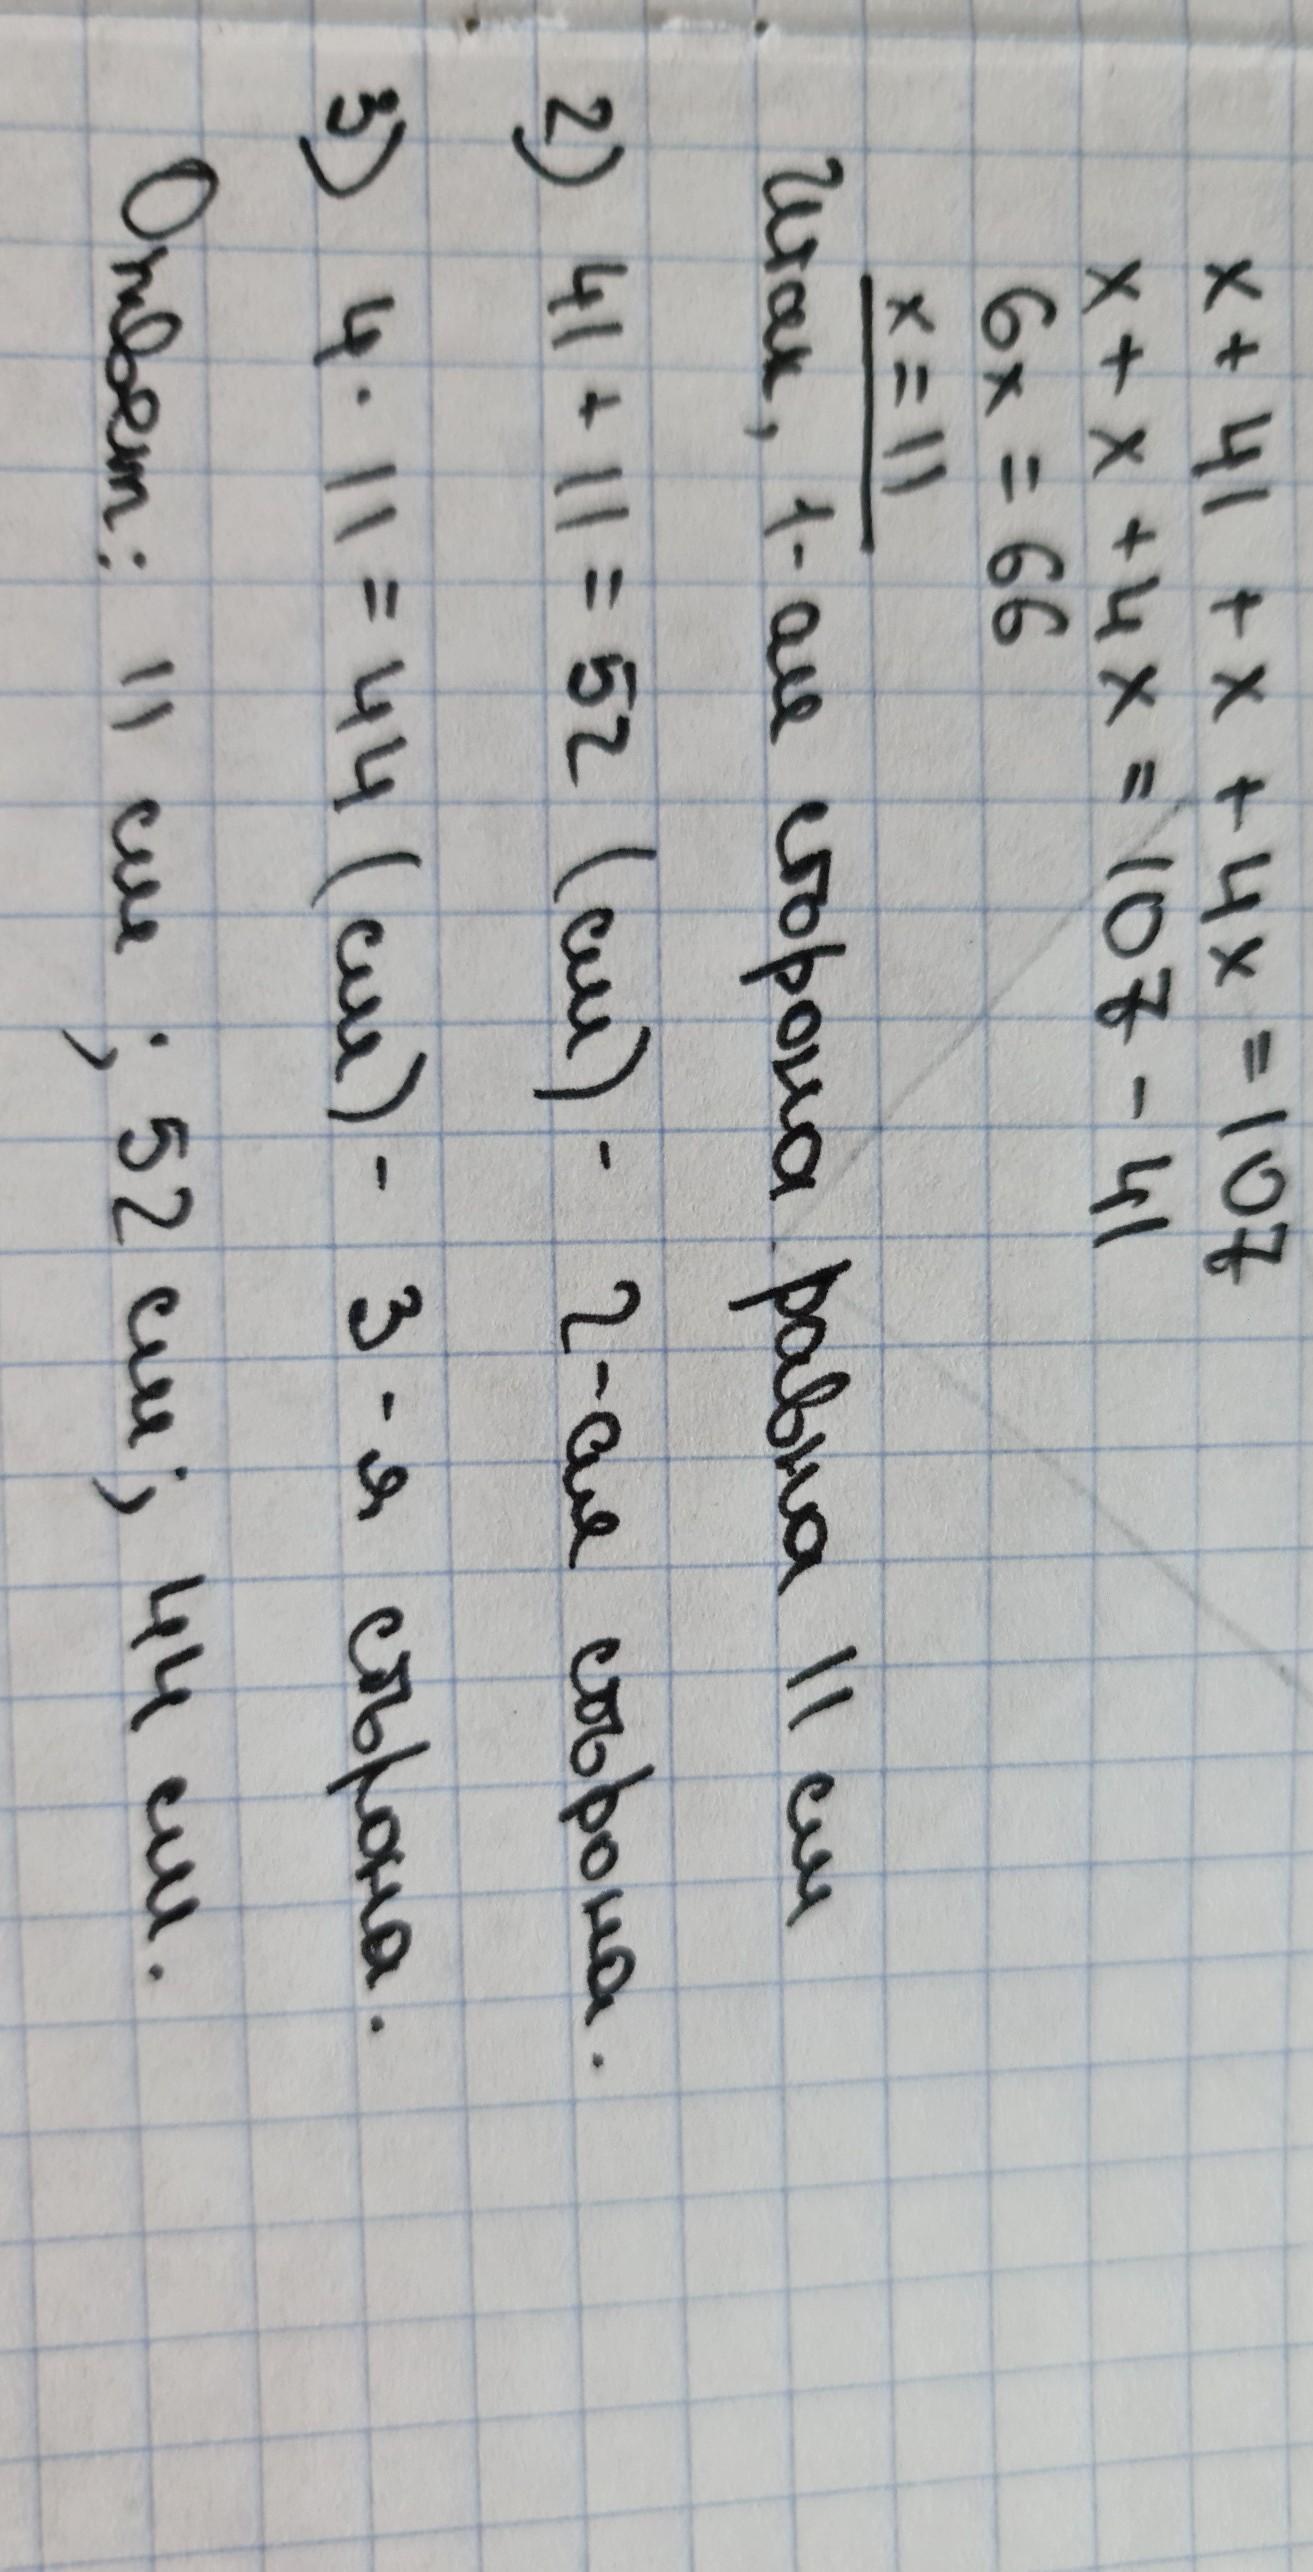 x + 41 + x + 4x = 107
x + x + 4x = 107 - 41
6x = 66
x = 11
Итак, 1-ая сторона равна 11 см
2) 41 + 11 = 52 (см) - 2-ая сторона.
3) 4 · 11 = 44 (см) - 3-я сторона.
Ответ: 11 см ; 52 см ; 44 см.